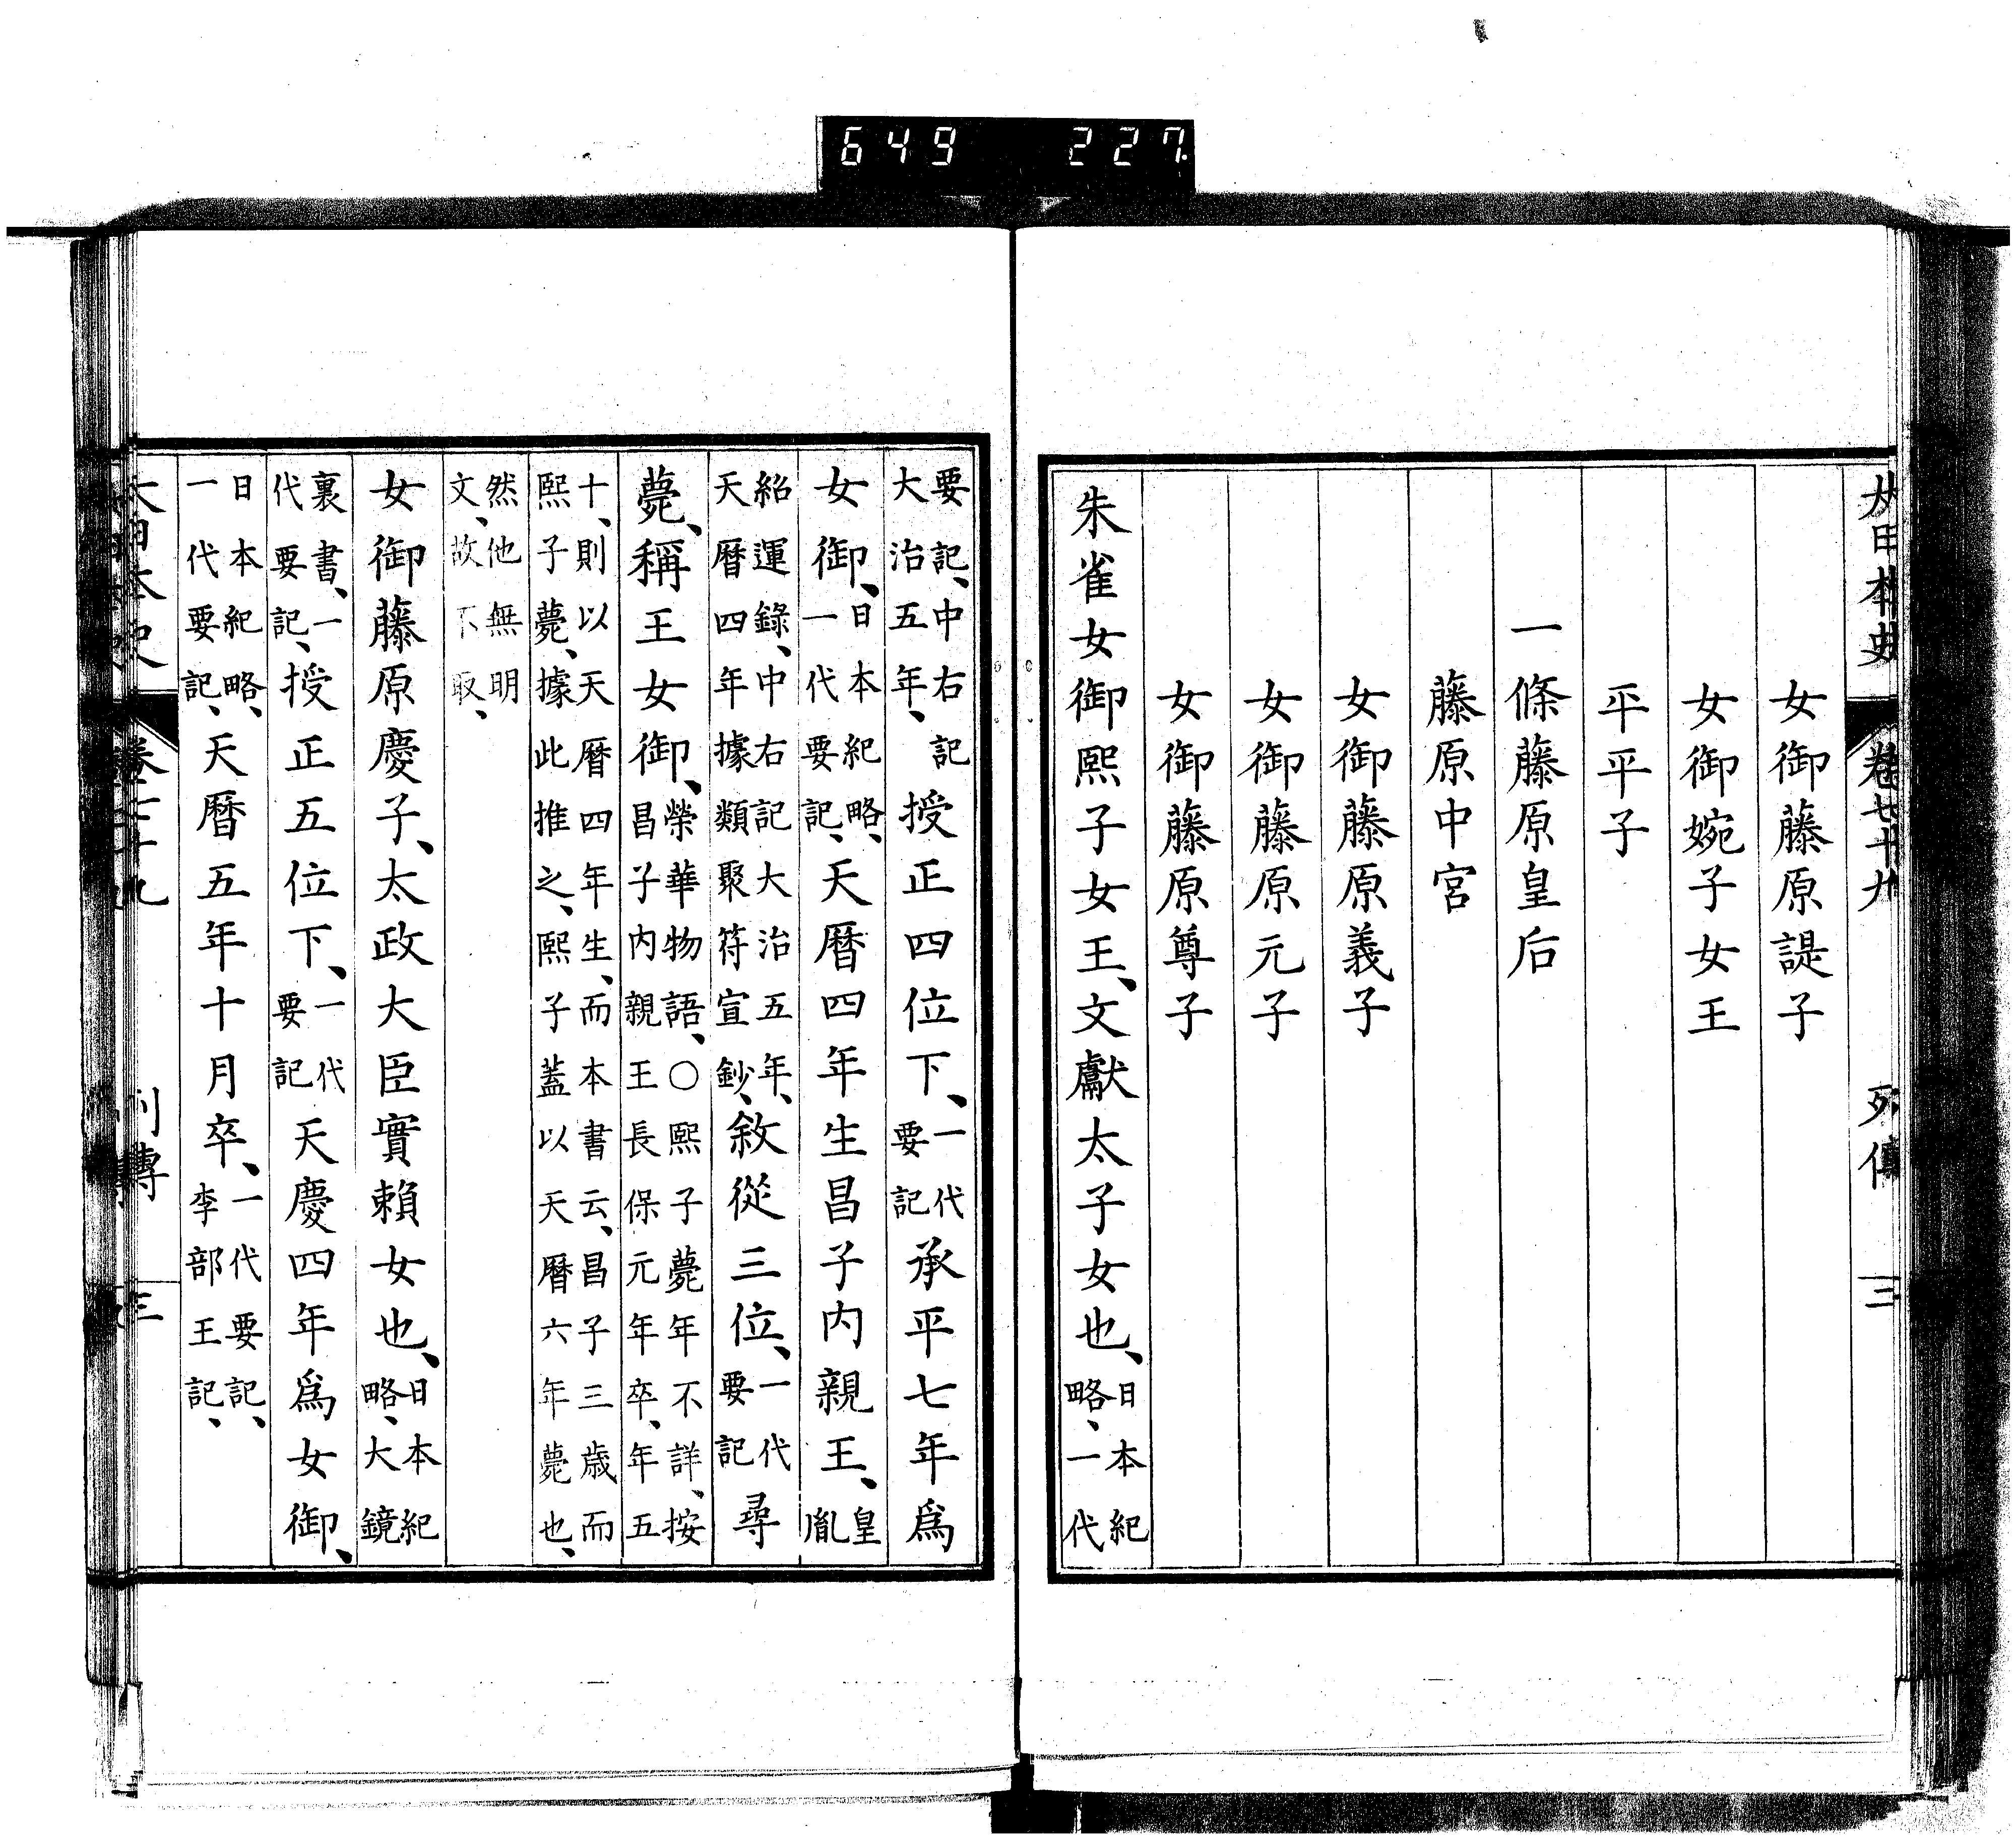 649 227
大日本史 卷七十九 列傳 二
女御藤原諟子
女御婉子女王
平平子
一條藤原皇后
藤原中宮
女御藤原義子
女御藤原元子
女御藤原尊子
朱雀女御熙子女王、文獻太子女也、日本紀略、一代
要記、中右記大治五年、授正四位下、一代要記承平七年爲
女御、日本紀略、一代要記、天曆四年生昌子內親王、皇胤
紹運錄、中右記大治五年、天曆四年據類聚符宣鈔、敘從三位、一代要記尋
薨、稱王女御、榮華物語、○熙子薨年不詳、按昌子內親王長保元年卒、年五
十、則以天曆四年生、而本書云、昌子三歲而熙子薨、據此推之、熙子蓋以天曆六年薨也、
然他無明文、故不取、
女御藤原慶子、太政大臣實賴女也、日本紀略、大鏡
裏書、一代要記、授正五位下、一代要記天慶四年爲女御、
日本紀略、一代要記、天曆五年十月卒、一代要記、李部王記、
大日本史 卷七十九 列傳 三